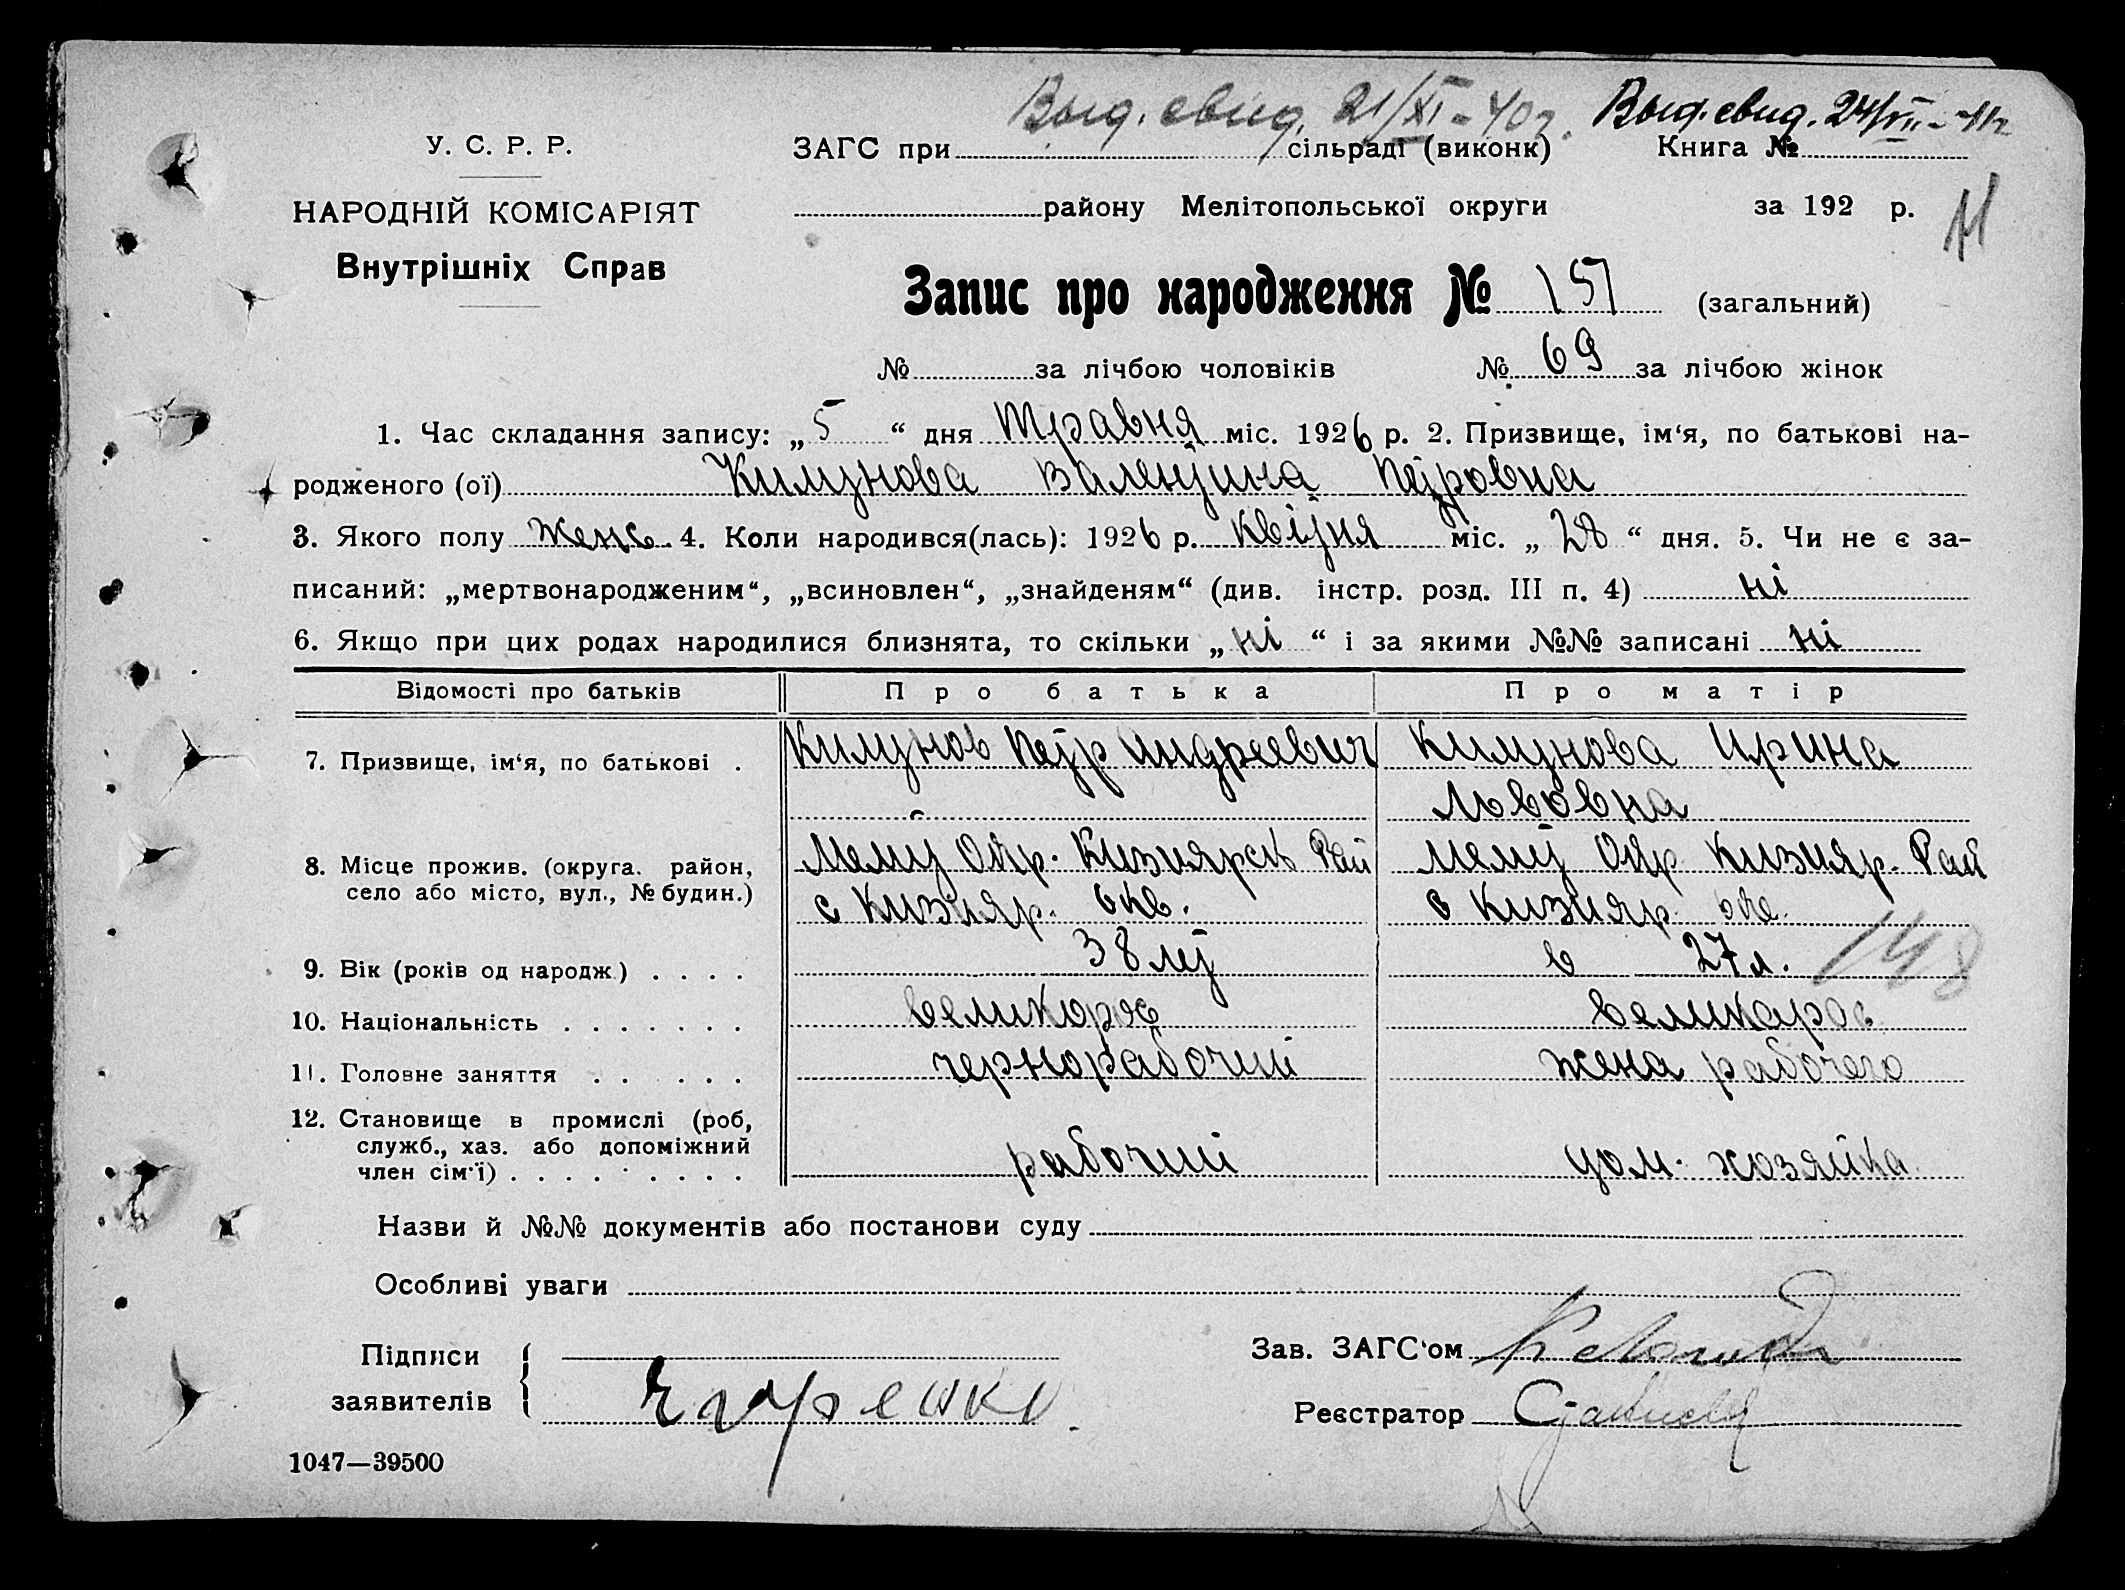 Выд. свид. 21/XI-40г. Выд. свид. 24/VII-41г
У. С. Р. Р.
НАРОДНІЙ КОМІСАРІЯТ
Внутрішніх Справ
ЗАГС при сільраді (виконк) Книга №
району Мелітопольської округи за 192 р.
Запис про народження № 151 (загальний)
№ за лічбою чоловіків № 69 за лічбою жінок
1. Час складання запису: „5“ дня травня міс. 1926 р. 2. Призвище, ім‘я, по батькові на-
родженого (ої) Килунова Валентина Петровна
3. Якого полу женс. 4. Коли народився(лась): 1926 р. квітня міс. „28“ дня. 5. Чи не є за-
писаний: „мертвонародженим“, „всиновлен“, „знайденям“ (див. інстр. розд. III п. 4) ні
6. Якщо при цих родах народилися близнята, то скільки „ні“ і за якими №№ записані ні
Відомості про батьків Про батька Про матір
7. Призвище, ім‘я, по батькові . Петр Андреевич Ирина
Львовна
8. Місце прожив. (округа. район, Мелит Окр. Кизиярск Рай Мелит Окр Кизияр. Рай
село або місто, вул., № будин.) с Кизияр. с Кизияр.
9. Вік (років од народж.) . . . . 38 лет 27 л.
148
10. Національність . . . . . . . великорос великорос
11. Головне заняття . . . . . . чернорабочий жена рабочего
12. Становище в промислі (роб,
служб., хаз. або допоміжний
член сім‘ї) . . . . . . . . . рабочий дом. хозяйка
Назви й №№ документів або постанови суду
Особливі уваги
Підписи
заявителів
Зав. ЗАГС‘ом
Реєстратор
1047—39500